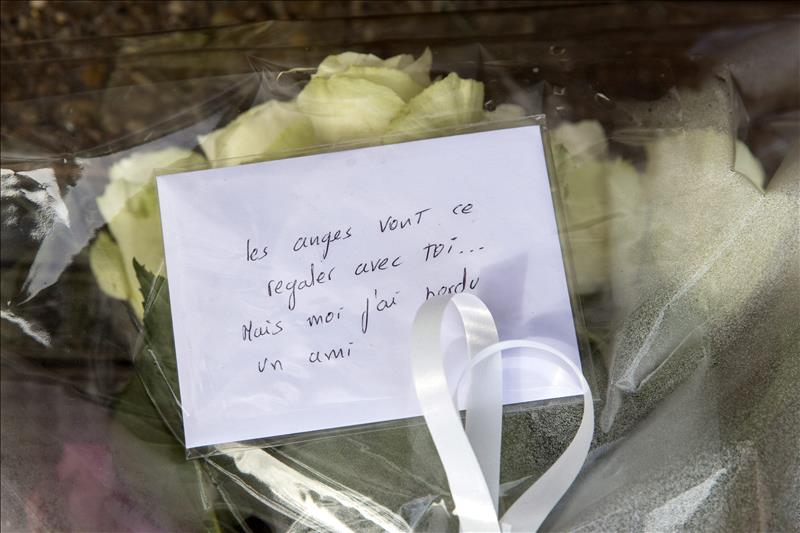 les anges vont ce
regaler avec toi...
Mais moi j'ai perdu
un ami